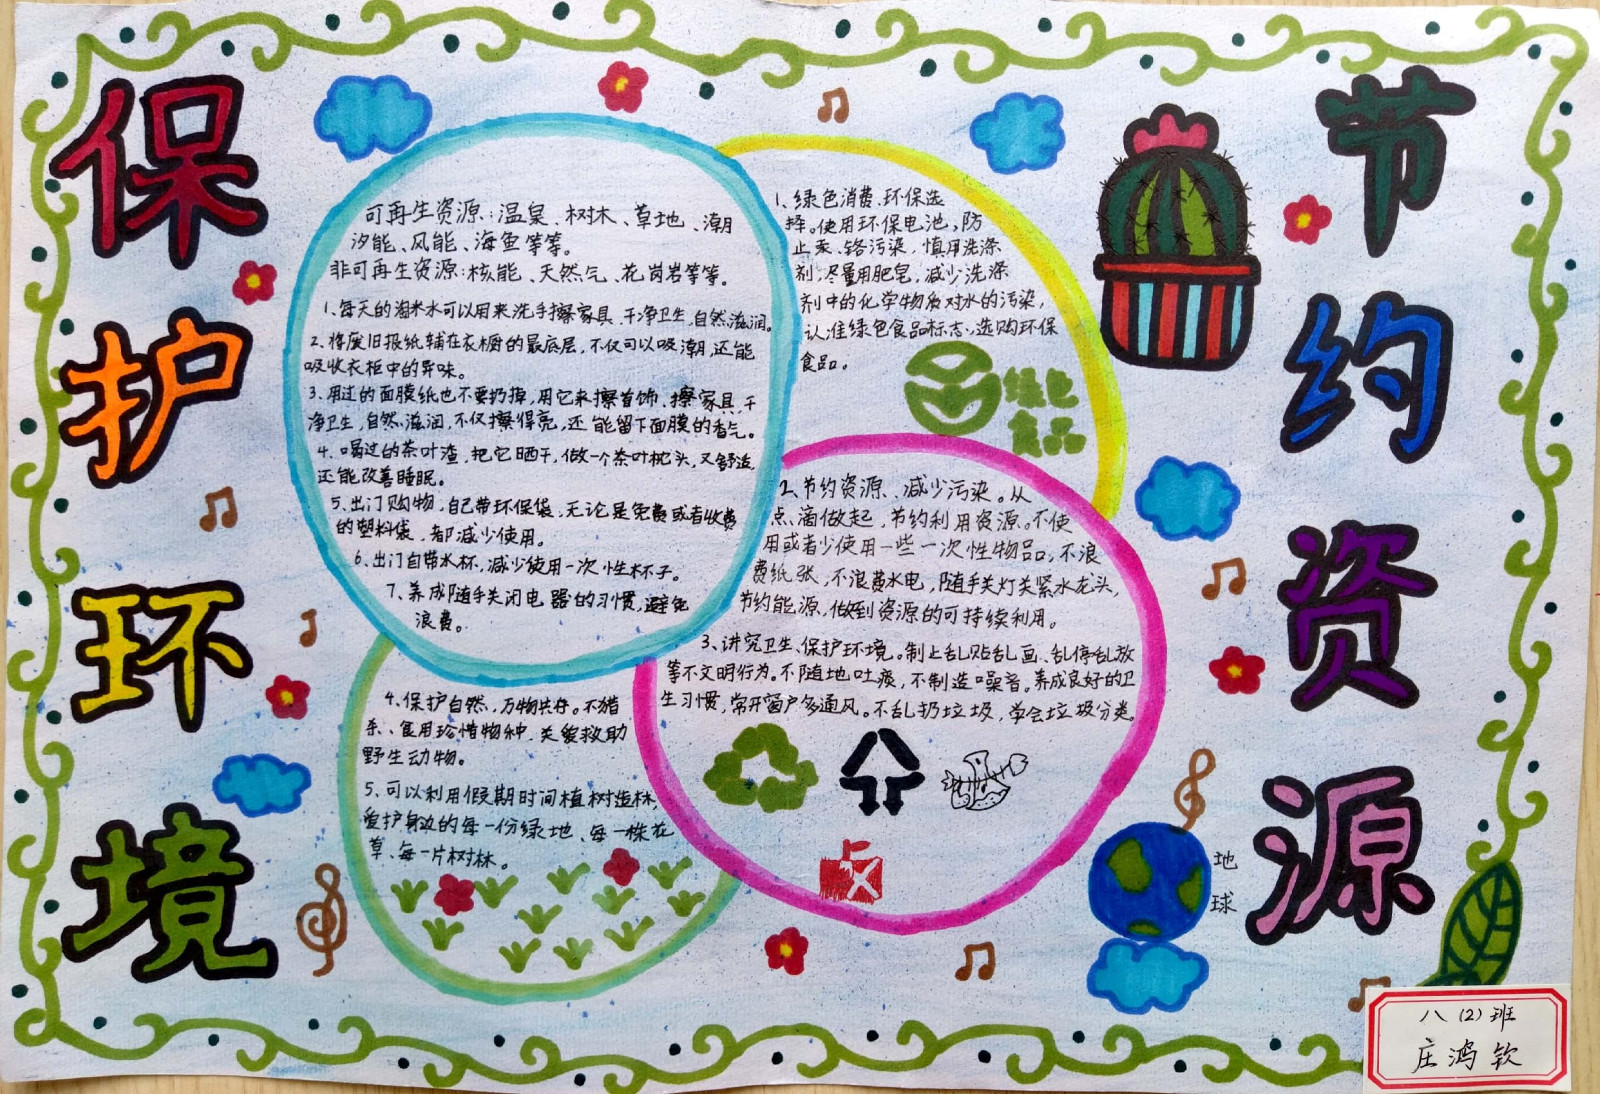 保护环境
节约资源
可再生资源：温泉、树木、草地、潮
汐能、风能、海鱼等等。
非可再生资源：核能、天然气、花岗岩等等。
1、每天的淘米水可以用来洗手擦家具，干净卫生，自然滋润。
2、将废旧报纸铺在衣橱的最底层，不仅可以吸潮，还能
吸收衣柜中的异味。
3、用过的面膜纸也不要扔掉，用它来擦首饰、擦家具，干
净卫生，自然滋润，不仅擦得亮，还能留下面膜的香气。
4、喝过的茶叶渣，把它晒干，做一个茶叶枕头，又舒适，
还能改善睡眠。
5、出门购物，自己带环保袋，无论是免费或者收费
的塑料袋，都减少使用。
6、出门自带水杯，减少使用一次性杯子。
7、养成随手关闭电器的习惯，避免
浪费。
1、绿色消费，环保选
择。使用环保电池，防
止汞、铬污染，慎用洗涤
剂，尽量用肥皂，减少洗涤
剂中的化学物质对水的污染，
认准绿色食品标志，选购环保
食品。
绿色
食品
2、节约资源、减少污染。从
点滴做起，节约利用资源。不使
用或者少使用一些一次性物品，不浪
费纸张，不浪费水电，随手关灯关紧水龙头，
节约能源，做到资源的可持续利用。
3、讲究卫生、保护环境。制止乱贴乱画、乱停乱放
等不文明行为。不随地吐痰，不制造噪音。养成良好的卫
生习惯，常开窗户多通风。不乱扔垃圾，学会垃圾分类。
4、保护自然，万物共存。不猎
杀、食用珍惜物种，关爱救助
野生动物。
5、可以利用假期时间植树造林，
爱护身边的每一份绿地、每一株花
草、每一片树林。
地
球
八（2）班
庄鸿钦